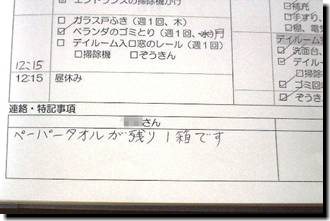 エントランスの掃除機かけ
□ガラス戸ふき（週1回、木）
☑ベランダのゴミとり（週1回、水月）
□デイルーム入口窓のレール（週1回）
□掃除機 □ぞうきん
12:15
12:15 昼休み
☑補充
□手すり、
□棚、電
デイルーム
☑洗面台、
☑ゴミ回
☑ぞうき
連絡・特記事項
さん
ペーパータオルが残り1箱です